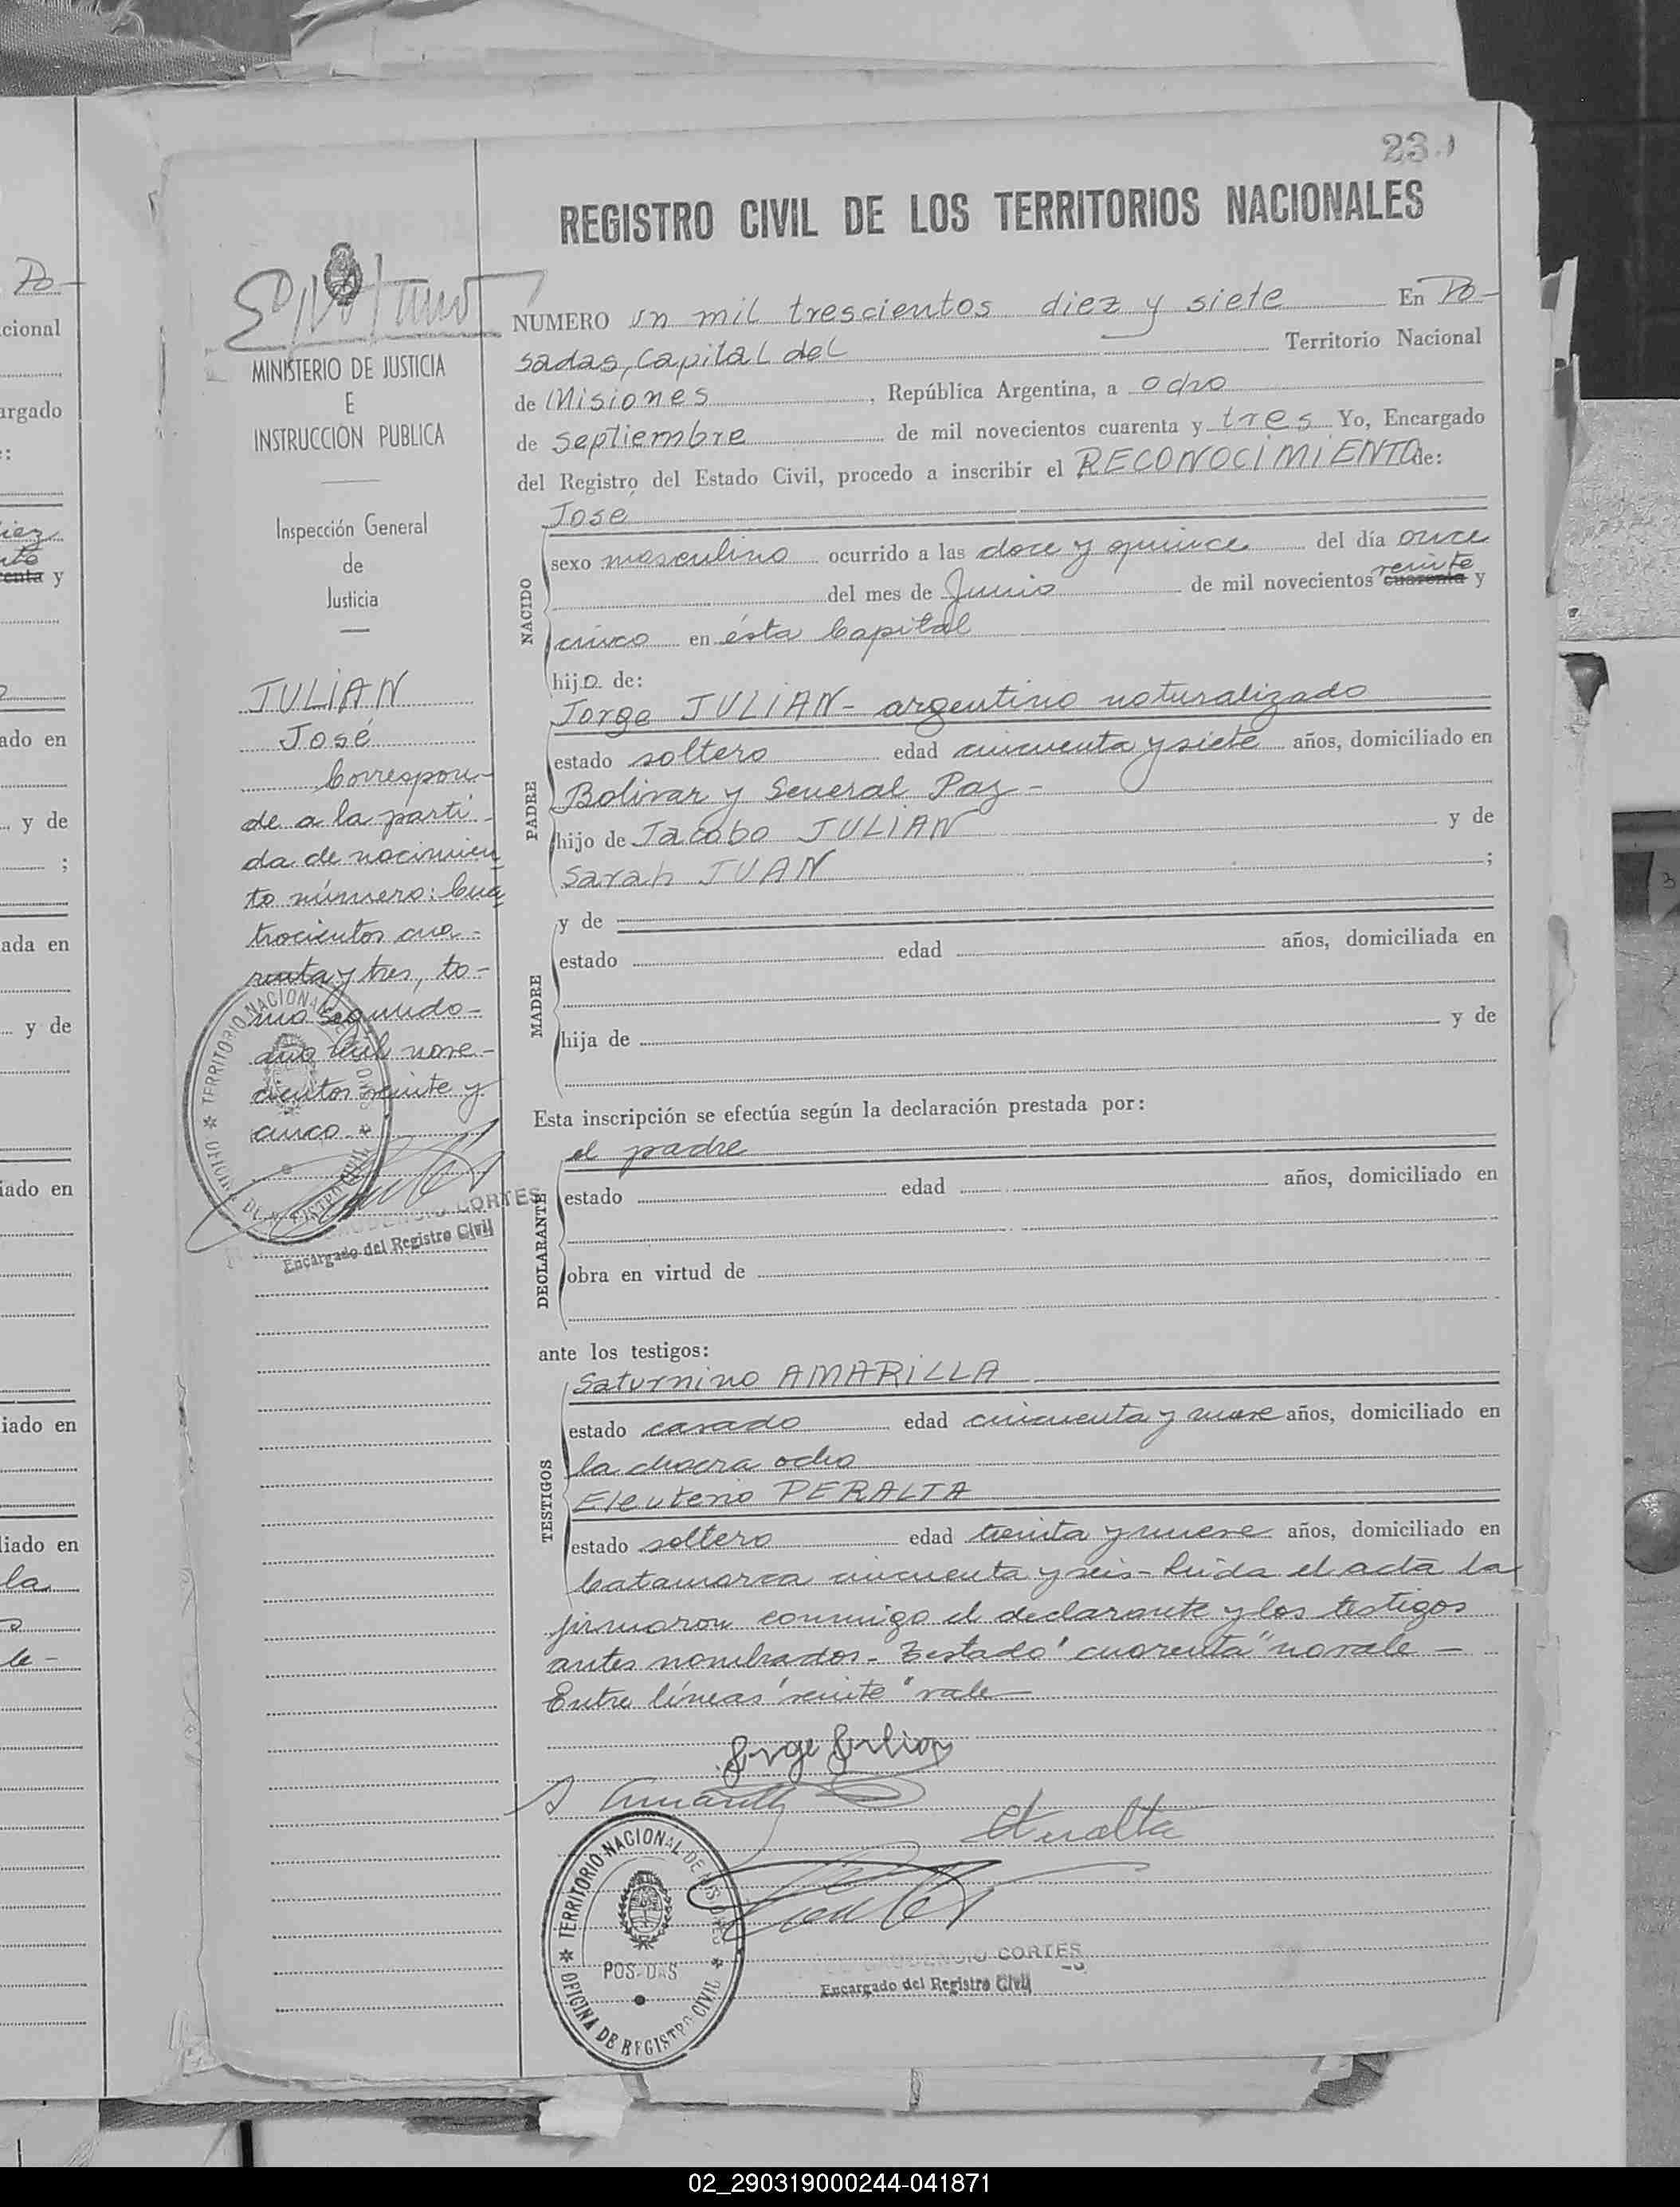 REGISTRO CIVIL DE LOS TERRITORIOS NACIONALES
MINISTERIO DE JUSTICIA
E
INSTRUCCIÓN PUBLICA
Inspección General
de
Justicia
JULIAN
José
Correspon-
de a la parti-
da de nacimien
to número: Cua
trocientos cua-
renta y tres, to-
mo segundo-
año mil nove-
cientos veinte y
cinco.-
CORTES
Encargado del Registro Civil
NUMERO un mil trescientos diez y siete En Po-
sadas, Capital del Territorio Nacional
de Misiones, República Argentina, a ocho
de septiembre de mil novecientos cuarenta y tres Yo, Encargado
del Registro del Estado Civil, procedo a inscribir el RECONOCIMIENTO de:
NACIDO
José
sexo masculino ocurrido a las doce y quince del día once
veinte
del mes de Junio de mil novecientos cuarenta y
cinco en ésta Capital
hijo de:
PADRE
Jorge JULIAN- argentino naturalizado
estado soltero edad cincuenta y siete años, domiciliado en
Bolivar y General Paz-
hijo de Jacobo JULIAN y de
Sarah JUAN ;
MADRE
y de
estado edad años, domiciliada en
hija de y de
Esta inscripción se efectúa según la declaración prestada por:
DECLARANTE
el padre
estado edad años, domiciliado en
obra en virtud de
ante los testigos:
TESTIGOS
Saturnino AMARILLA
estado casado edad cincuenta y nueve años, domiciliado en
la chacra ocho
Eleuterio PERALTA
estado soltero edad treinta y nueve años, domiciliado en
Catamarca cincuenta y seis- Leída el acta la
firmaron conmigo el declarante y los testigos
antes nombrados- Testado "cuarenta" no vale-
Entre líneas "veinte" vale
Jorge Julian
TERRITORIO NACIONAL DE MISIONES
POSADAS
OFICINA DE REGISTRO CIVIL
CORTES
Encargado del Registro Civil
02_290319000244-041871